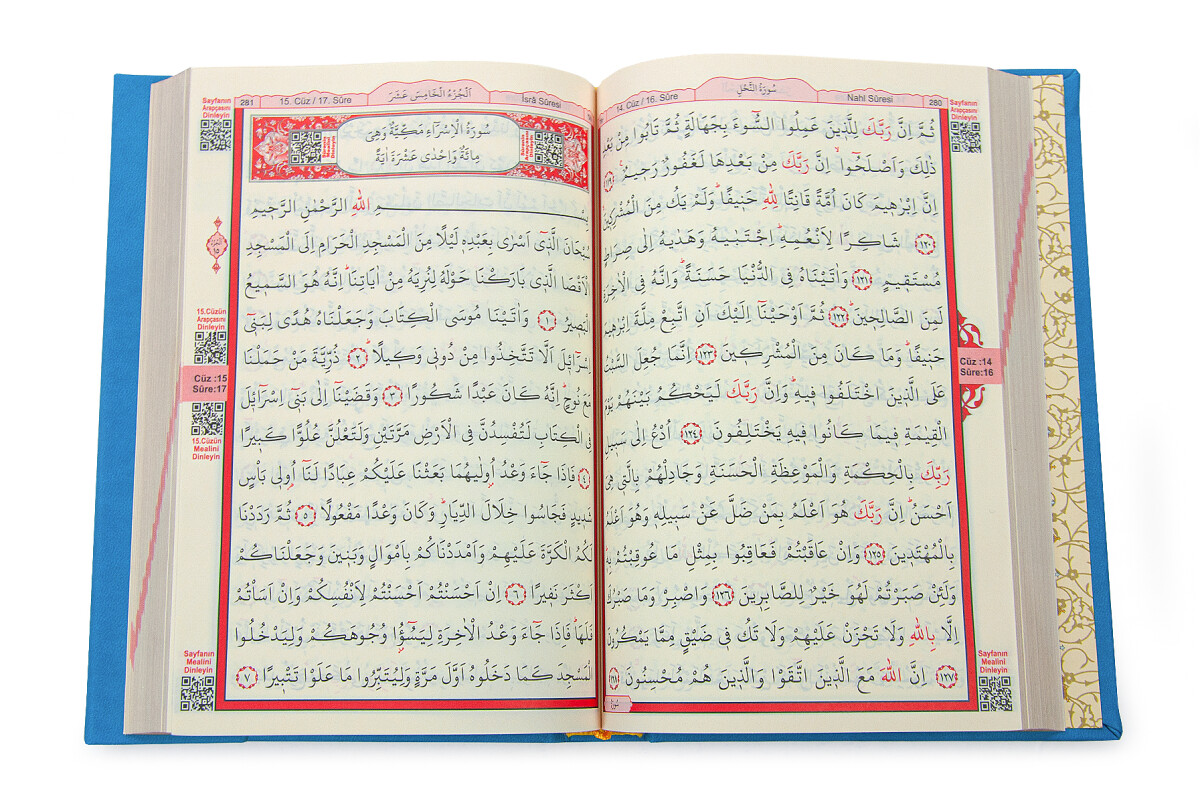 Nahl Sûresi 280
سُورَةُ النَّحْلِ
14. Cüz / 16. Sûre
Sayfanın
Arapçasını
Dinleyin
ثُمَّ اِنَّ رَبَّكَ لِلَّذ۪ينَ عَمِلُوا السُّٓوءَ بِجَهَالَةٍ ثُمَّ تَابُوا مِنْ بَعْدِ
ذٰلِكَ وَاَصْلَحُٓوا اِنَّ رَبَّكَ مِنْ بَعْدِهَا لَغَفُورٌ رَح۪يمٌ ﴿١١٩﴾
اِنَّ اِبْرٰه۪يمَ كَانَ اُمَّةً قَانِتًا لِلّٰهِ حَن۪يفًا وَلَمْ يَكُ مِنَ الْمُشْرِك۪ينَ
﴿١٢٠﴾ شَاكِرًا لِاَنْعُمِهِ اِجْتَبٰيهُ وَهَدٰيهُ اِلٰى صِرَاطٍ
مُسْتَق۪يمٍ ﴿١٢١﴾ وَاٰتَيْنَاهُ فِي الدُّنْيَا حَسَنَةً وَاِنَّهُ فِي الْاٰخِرَةِ
لَمِنَ الصَّالِح۪ينَ ﴿١٢٢﴾ ثُمَّ اَوْحَيْنَٓا اِلَيْكَ اَنِ اتَّبِعْ مِلَّةَ اِبْرٰه۪يمَ
حَن۪يفًا وَمَا كَانَ مِنَ الْمُشْرِك۪ينَ ﴿١٢٣﴾ اِنَّمَا جُعِلَ السَّبْتُ
عَلَى الَّذ۪ينَ اخْتَلَفُوا ف۪يهِ وَاِنَّ رَبَّكَ لَيَحْكُمُ بَيْنَهُمْ يَوْمَ
الْقِيٰمَةِ ف۪يمَا كَانُوا ف۪يهِ يَخْتَلِفُونَ ﴿١٢٤﴾ اُدْعُ اِلٰى سَب۪يلِ
رَبِّكَ بِالْحِكْمَةِ وَالْمَوْعِظَةِ الْحَسَنَةِ وَجَادِلْهُمْ بِالَّت۪ي هِيَ
اَحْسَنُ اِنَّ رَبَّكَ هُوَ اَعْلَمُ بِمَنْ ضَلَّ عَنْ سَب۪يلِه۪ وَهُوَ اَعْلَمُ
بِالْمُهْتَد۪ينَ ﴿١٢٥﴾ وَاِنْ عَاقَبْتُمْ فَعَاقِبُوا بِمِثْلِ مَا عُوقِبْتُمْ بِه۪
وَلَئِنْ صَبَرْتُمْ لَهُوَ خَيْرٌ لِلصَّابِر۪ينَ ﴿١٢٦﴾ وَاصْبِرْ وَمَا صَبْرُكَ
اِلَّا بِاللّٰهِ وَلَا تَحْزَنْ عَلَيْهِمْ وَلَا تَكُ ف۪ي ضَيْقٍ مِمَّا يَمْكُرُونَ
﴿١٢٧﴾ اِنَّ اللّٰهَ مَعَ الَّذ۪ينَ اتَّقَوْا وَالَّذ۪ينَ هُمْ مُحْسِنُونَ ﴿١٢٨﴾
Cüz :14
Sûre:16
Sayfanın
Mealini
Dinleyin
İsrâ Sûresi
اَلْجُزْءُ الْخَامِسَ عَشَرَ
15. Cüz / 17. Sûre
281
Sayfanın
Arapçasını
Dinleyin
سُورَةُ الْاِسْرَٓاءِ مَكِّيَّةٌ وَهِيَ
مِائَةٌ وَاِحْدٰى عَشْرَةَ اٰيَةً
بِسْمِ اللّٰهِ الرَّحْمٰنِ الرَّح۪يمِ
سُبْحَانَ الَّذ۪ٓي اَسْرٰى بِعَبْدِه۪ لَيْلًا مِنَ الْمَسْجِدِ الْحَرَامِ اِلَى الْمَسْجِدِ
الْاَقْصَا الَّذ۪ي بَارَكْنَا حَوْلَهُ لِنُرِيَهُ مِنْ اٰيَاتِنَا اِنَّهُ هُوَ السَّم۪يعُ
الْبَص۪يرُ ﴿١﴾ وَاٰتَيْنَا مُوسَى الْكِتَابَ وَجَعَلْنَاهُ هُدًى لِبَن۪ٓي
اِسْرَٓائ۪لَ اَلَّا تَتَّخِذُوا مِنْ دُون۪ي وَك۪يلًا ﴿٢﴾ ذُرِّيَّةَ مَنْ حَمَلْنَا
مَعَ نُوحٍ اِنَّهُ كَانَ عَبْدًا شَكُورًا ﴿٣﴾ وَقَضَيْنَٓا اِلٰى بَن۪ٓي اِسْرَٓائ۪لَ
فِي الْكِتَابِ لَتُفْسِدُنَّ فِي الْاَرْضِ مَرَّتَيْنِ وَلَتَعْلُنَّ عُلُوًّا كَب۪يرًا
﴿٤﴾ فَاِذَا جَٓاءَ وَعْدُ اُو۫لٰيهُمَا بَعَثْنَا عَلَيْكُمْ عِبَادًا لَنَٓا اُو۬ل۪ي بَأْسٍ
شَد۪يدٍ فَجَاسُوا خِلَالَ الدِّيَارِ وَكَانَ وَعْدًا مَفْعُولًا ﴿٥﴾ ثُمَّ رَدَدْنَا
لَكُمُ الْكَرَّةَ عَلَيْهِمْ وَاَمْدَدْنَاكُمْ بِاَمْوَالٍ وَبَن۪ينَ وَجَعَلْنَاكُمْ
اَكْثَرَ نَف۪يرًا ﴿٦﴾ اِنْ اَحْسَنْتُمْ اَحْسَنْتُمْ لِاَنْفُسِكُمْ وَاِنْ اَسَأْتُمْ
فَلَهَا فَاِذَا جَٓاءَ وَعْدُ الْاٰخِرَةِ لِيَسُٓؤُ۫ا وُجُوهَكُمْ وَلِيَدْخُلُوا
الْمَسْجِدَ كَمَا دَخَلُوهُ اَوَّلَ مَرَّةٍ وَلِيُتَبِّرُوا مَا عَلَوْا تَتْب۪يرًا ﴿٧﴾
15.Cüzün
Arapçasını
Dinleyin
Cüz :15
Sûre:17
15.Cüzün
Mealini
Dinleyin
Sayfanın
Mealini
Dinleyin